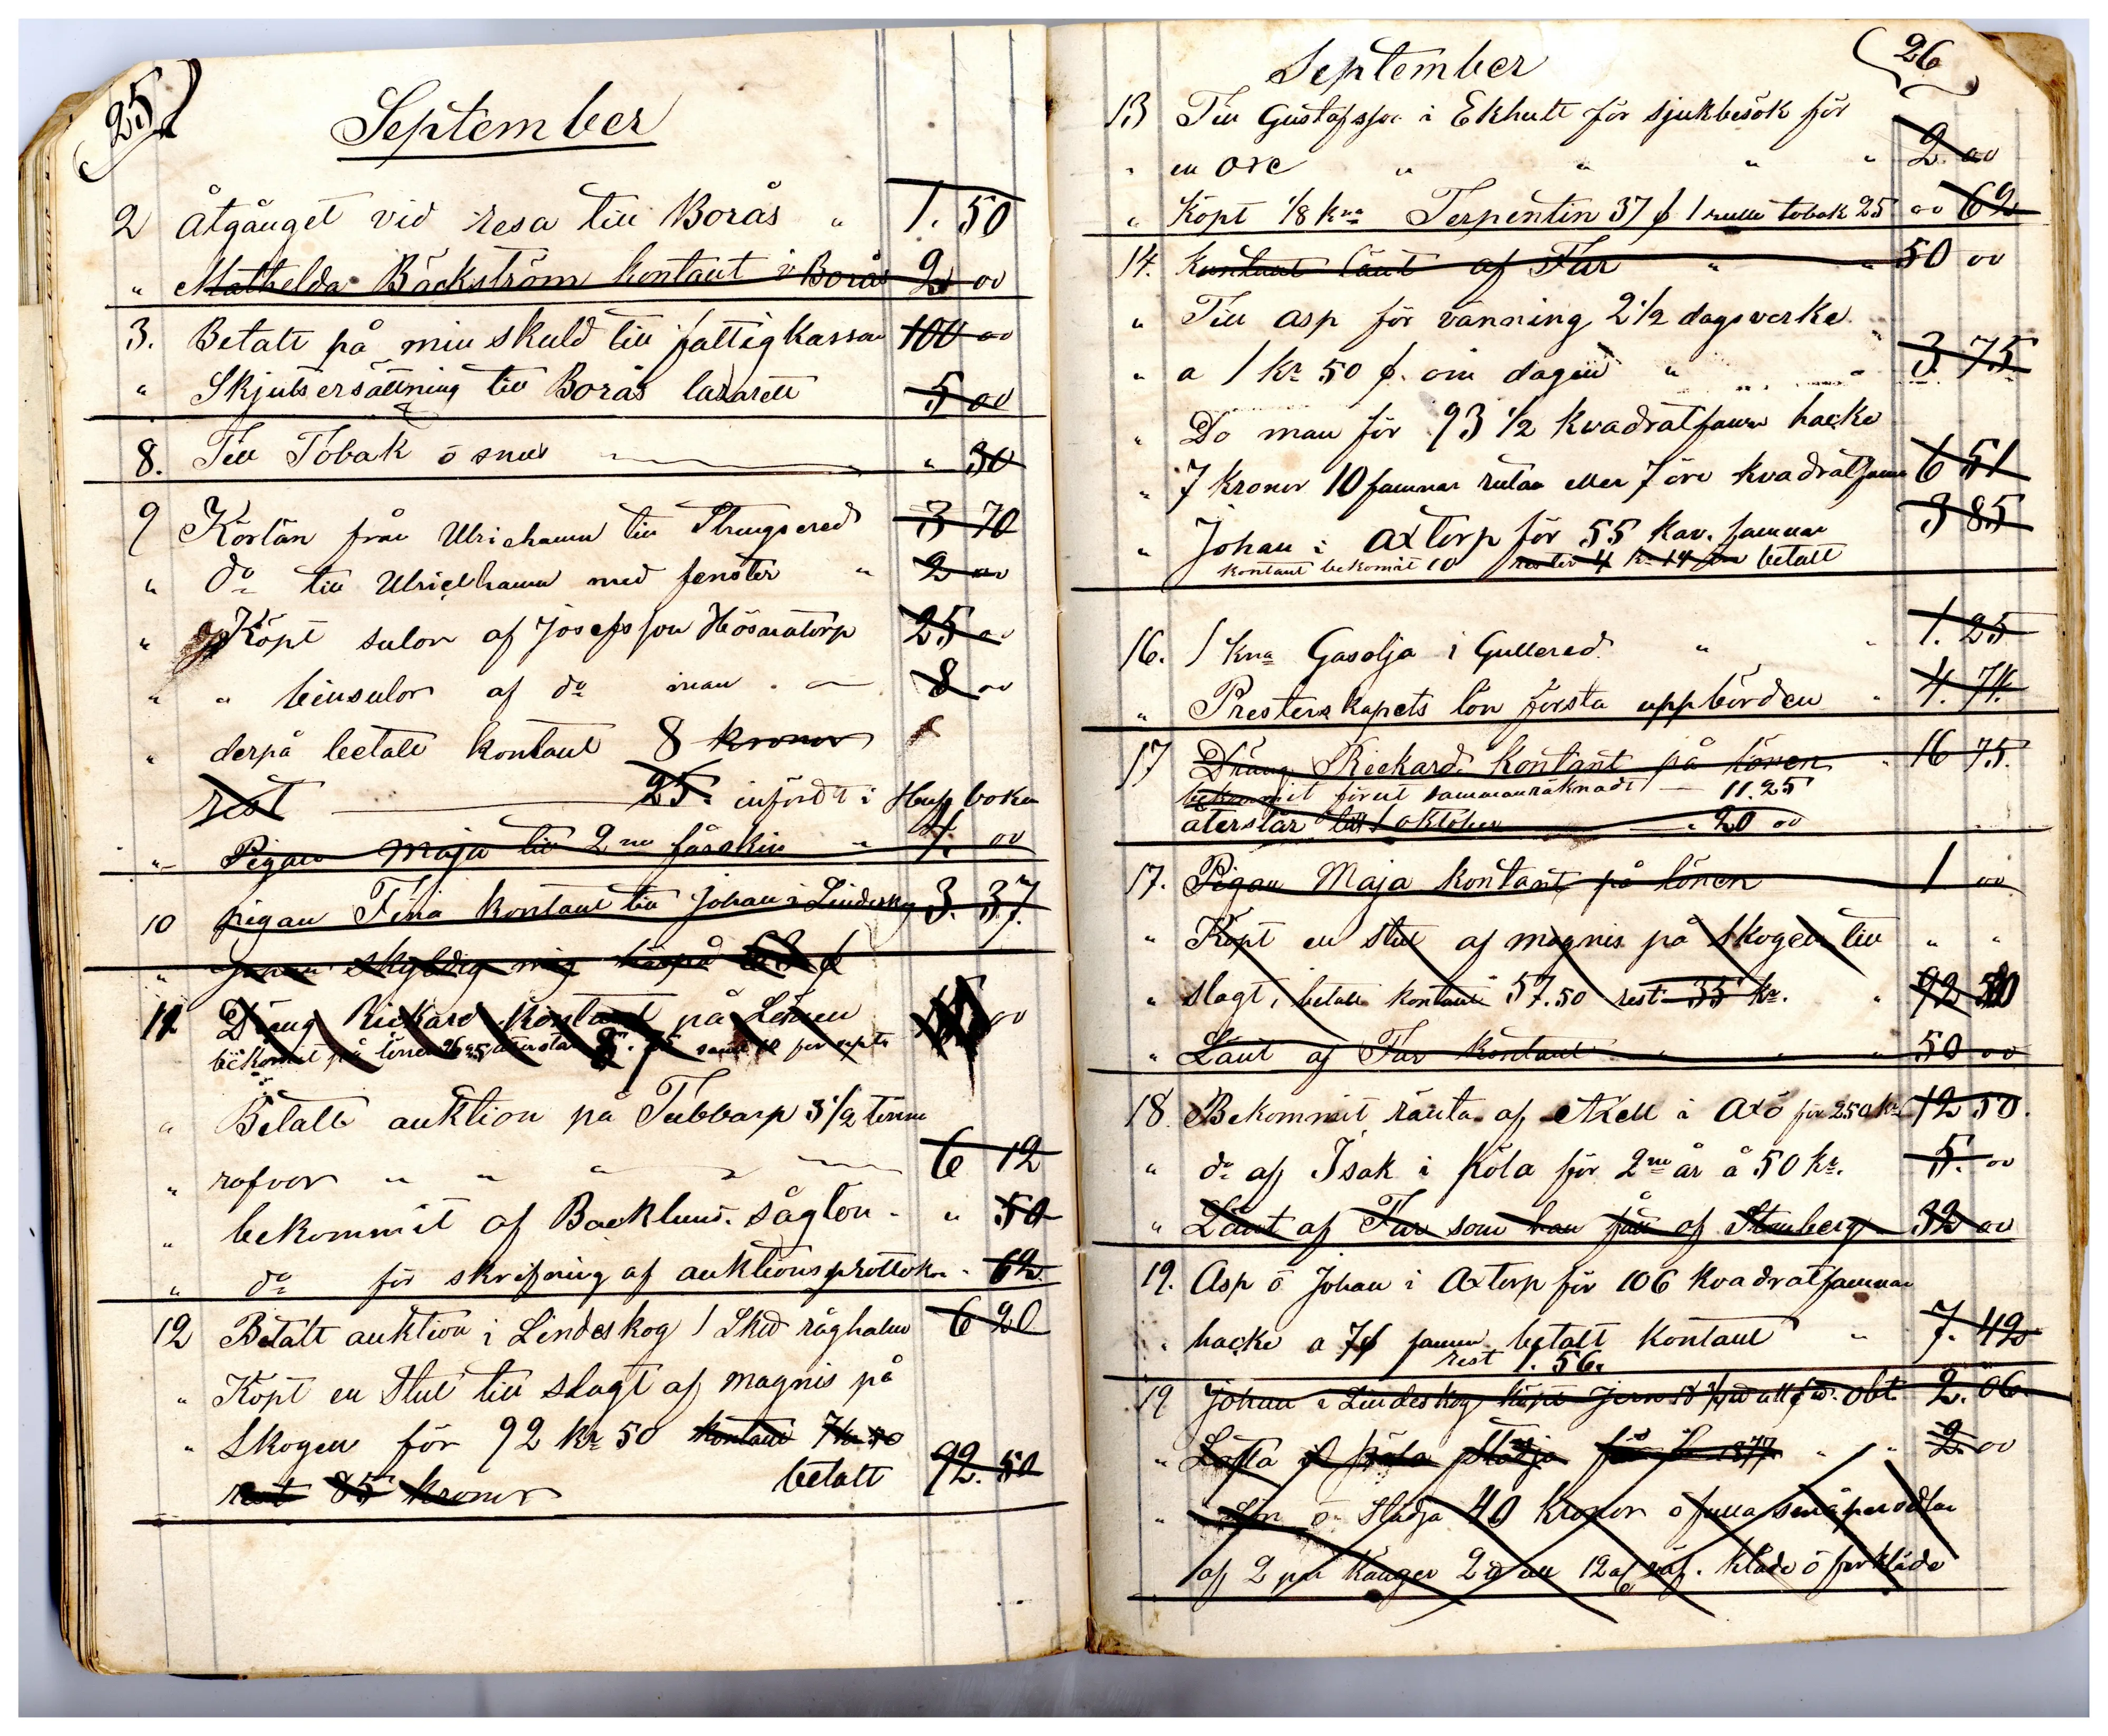 25
September
2 Åtgånget vid resa till Borås " 1. 50
" Mathelda Bäckström kontant i Borås 2 00
3. Betalt på min skuld till fattigkassan 100 00
" Skjutsersättning till Borås lazarett 5 00
8. Till Tobak ö snus " 30
9 Körlön från Ulricehamn till Strengsered 3 70
" do till Ulricehamn med fenster " 2 00
" Köpt sulor af Josefsson Hösnatorp 25 00
" " beinsulor af do man 8 00
" derpå betalt kontant 8 kronor
rest 25. infördt i Huf boken
" Pigan Maja till 2ne fårskin " 4. 00
10 pigan Fina kontant till Johan i Lindeskog 3. 37
" Johan skyldig mig härpå
12 Dräng Rickard kontant på Lönen 00
bekommit på lönen
" Betalt auktion på Tubbarp 3 1/2 tunna
" rofvor " " " 6 12
" bekommit af Backlund. såglön " 50
" do för skrifning af auktionsprottokol " 62
12 Betalt auktion i Lindeskog 1 Skd råghalm 6 20
" Köpt en Stut till slagt af magnis på
" Skogen för 92 kr 50 kontant 7 kr 50
rest 85 kronor betalt 92. 50
26
September
13 Till Gustafsson i Ekhult för sjukbesök för
" en " " " " 2. 00
" Köpt 1/8 kna Terpentin 37 1 rulle tobak 25 00 62
14. Kontant lånt af Far " " 50 00
" Till Asp för vänning 2 1/2 dagsverke
" a 1 kr 50 om dagen " " 3. 75
" Do man för 93 1/2 kvadratfamn hacke
" 7 kronor 10 famnar rutan eller 7 öre kvadratfamn 6 51
" Johan i Axtorp för 55 kav. famnar 3 85
kontant bekomit 10 rester 4 kr 14 betalt
16. 1 kna Gasolja i Gullered " " 1. 25
" Presterskapets lön första uppbörden " 4. 74.
17 Dräng Rickard kontant på lönen " 16 75.
bekommit förut sammanräknadt 11. 25
återstår till 1 oktober 20 00
17. Pigan Maja kontant på lönen 1 00
" Köpt en stut af magnis på skogen till " "
" slagt, betalt kontant 57.50 rest 35 kr. " 92 50
" Lånt af Far kontant " " " 50 00
18. Bekommit ränta af Axell i Axö för 250 kr 12 50.
" do af Isak i Köla för 2ne år å 50 kr. 5. 00
" Lånt af Far som han fått af Stenberg 32 00
19. Asp ö Johan i Axtorp för 106 kvadratfamnar
" hacke a 7 famn betalt kontant " 7. 42
rest 1. 56.
19 Johan i Lindeskog köpt jern 2. 06
" Lotta i Köla städja för 1877 " " 2. 00
" Lön ö städja 40 kronor ö fulla småpersedlar
af 2 par kängor 2 12 kläde ö förkläde